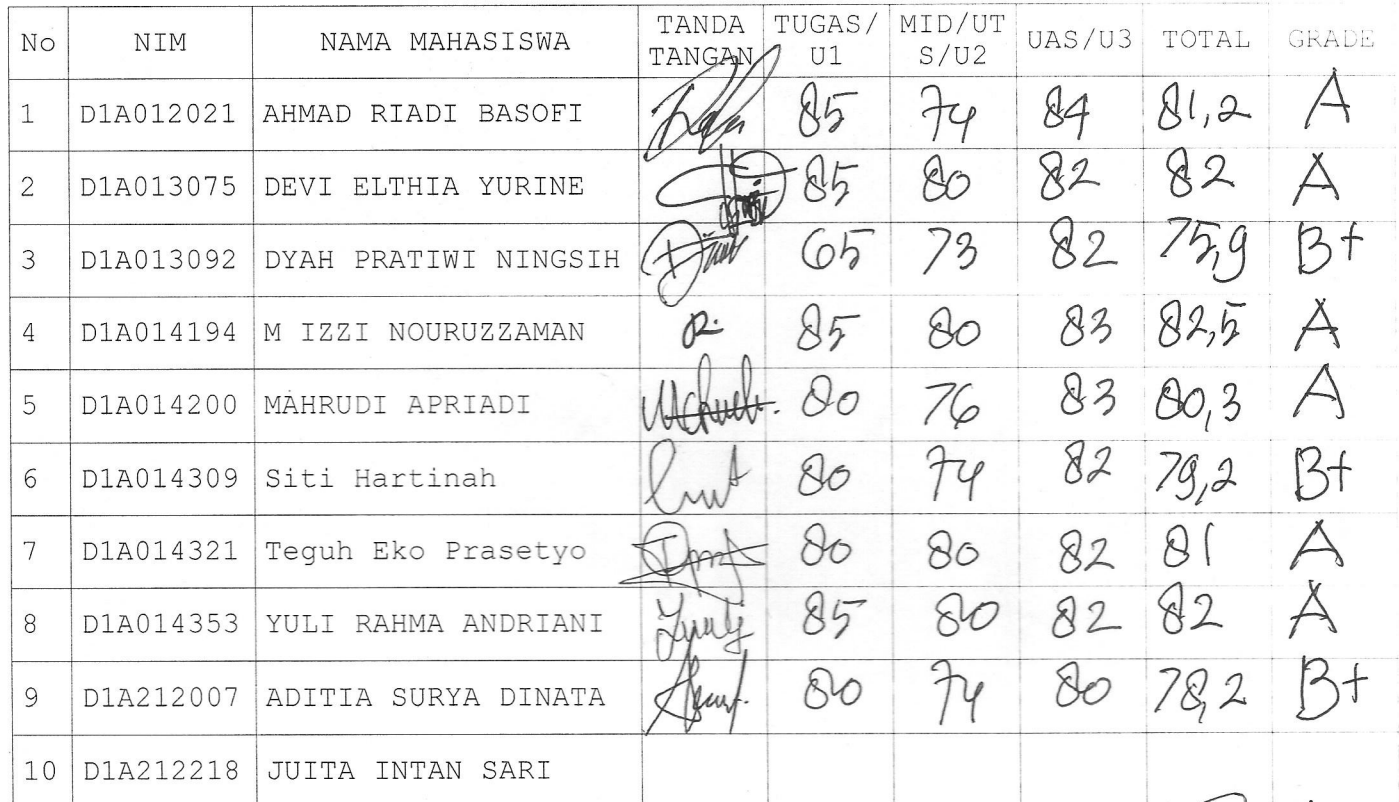 No NIM NAMA MAHASISWA TANDA TANGAN TUGAS/U1 MID/UTS/U2 UAS/U3 TOTAL GRADE
1 D1A012021 AHMAD RIADI BASOFI 85 74 84 81,2 A
2 D1A013075 DEVI ELTHIA YURINE 85 80 82 82 A
3 D1A013092 DYAH PRATIWI NINGSIH 65 73 82 75,9 B+
4 D1A014194 M IZZI NOURUZZAMAN 85 80 83 82,5 A
5 D1A014200 MAHRUDI APRIADI 80 76 83 80,3 A
6 D1A014309 Siti Hartinah 80 74 82 79,2 B+
7 D1A014321 Teguh Eko Prasetyo 80 80 82 81 A
8 D1A014353 YULI RAHMA ANDRIANI 85 80 82 82 A
9 D1A212007 ADITIA SURYA DINATA 80 74 80 78,2 B+
10 D1A212218 JUITA INTAN SARI